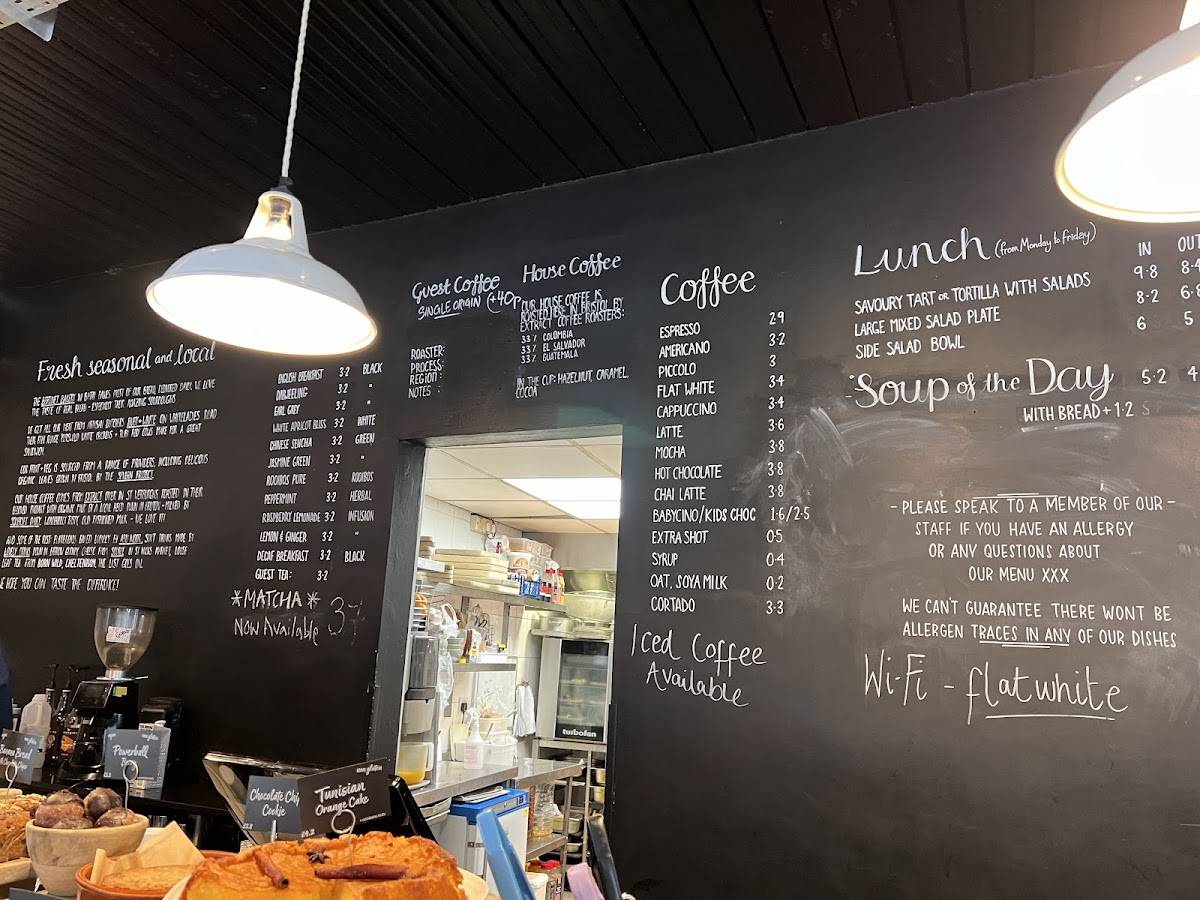 Fresh seasonal and local
THE BERTINET BAKERY IN BATH BAKES MOST OF OUR BREAD, DELIVERED DAILY. WE LOVE
THE TASTE OF REAL BREAD - ESPECIALLY THEIR AMAZING SOURDOUGHS
WE GET ALL OUR MEAT FROM ARTISAN BUTCHERS RUBY + WHITE ON WHITELADIES ROAD
OUR FRUIT + VEG IS SOURCED FROM A RANGE OF PROVIDERS, INCLUDING DELICIOUS
ORGANIC LEAVES GROWN IN BRISTOL BY THE
OUR HOUSE COFFEE COMES FROM EXTRACT OVER IN ST WERBURGHS, ROASTED IN THEIR
LEAF TEA FROM BORN WILD, CHELTENHAM, THE LIST GOES ON.
WE HOPE YOU CAN TASTE THE DIFFERENCE!
ENGLISH BREAKFAST 3·2 BLACK
DARJEELING 3·2 "
EARL GREY 3·2 "
WHITE APRICOT BLISS 3·2 WHITE
CHINESE SENCHA 3·2 GREEN
JASMINE GREEN 3·2 "
ROOIBOS PURE 3·2 ROOIBOS
PEPPERMINT 3·2 HERBAL
RASPBERRY LEMONADE 3·2 INFUSION
LEMON & GINGER 3·2 "
DECAF BREAKFAST 3·2 BLACK
GUEST TEA: 3·2
*MATCHA* 37
NOW AVAILABLE
Guest Coffee
SINGLE ORIGIN (+40p
ROASTER:
PROCESS:
REGION:
NOTES:
House Coffee
OUR HOUSE COFFEE IS
ROASTED HERE IN BRISTOL BY
EXTRACT COFFEE ROASTERS:
33% COLOMBIA
33% EL SALVADOR
33% GUATEMALA
IN THE CUP: HAZELNUT, CARAMEL,
COCOA
Coffee
ESPRESSO 2·9
AMERICANO 3·2
PICCOLO 3
FLAT WHITE 3·4
CAPPUCCINO 3·4
LATTE 3·6
MOCHA 3·8
HOT CHOCOLATE 3·8
CHAI LATTE 3·8
BABYCINO/KIDS CHOC 1·6/2·5
EXTRA SHOT 0·5
SYRUP 0·4
OAT, SOYA MILK 0·2
CORTADO 3·3
Iced Coffee
Available
Lunch (from Monday to Friday) IN OUT
SAVOURY TART OR TORTILLA WITH SALADS 9·8 8·4
LARGE MIXED SALAD PLATE 8·2 6·8
SIDE SALAD BOWL 6 5
-Soup of the Day 5·2 4
WITH BREAD + 1·2
- PLEASE SPEAK TO A MEMBER OF OUR -
STAFF IF YOU HAVE AN ALLERGY
OR ANY QUESTIONS ABOUT
OUR MENU XXX
WE CAN'T GUARANTEE THERE WONT BE
ALLERGEN TRACES IN ANY OF OUR DISHES
Wi-Fi - flatwhite
turbofan
Banana Bread
Powerball
Chocolate Chip
Cookie
Tunisian
Orange Cake